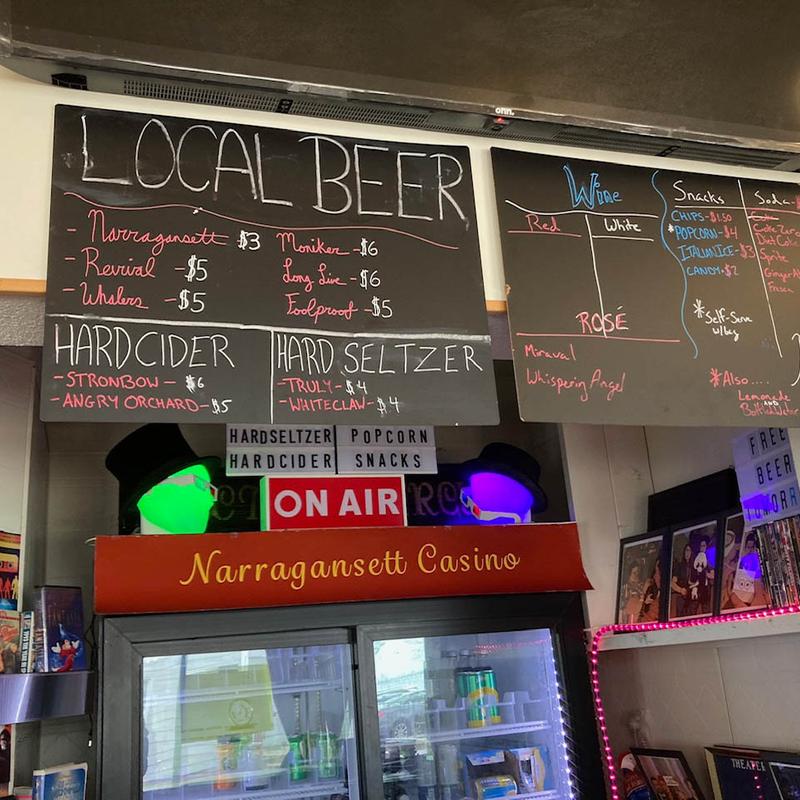 onn.
LOCAL BEER
- Narragansett $3
- Revival - $5
- Whalers - $5
Moniker - $6
Long Live - $6
Foolproof - $5
HARD CIDER
- STRONBOW - $6
- ANGRY ORCHARD - $5
HARD SELTZER
- TRULY - $4
- WHITECLAW - $4
Wine
Red
White
ROSÉ
Miraval
Whispering Angel
Snacks
CHIPS - $1.50
*POPCORN - $4
ITALIAN ICE - $3
CANDY - $2
*Self-Serve
w/bag
Soda -
Coke
Coke Zero
Diet Coke
Sprite
Ginger Al
Fresca
*Also ....
Lemonade
AND
Bottled Water
HARDSELTZER
HARDCIDER
POPCORN
SNACKS
ON AIR
Narragansett Casino
FREE
BEER
THEATER